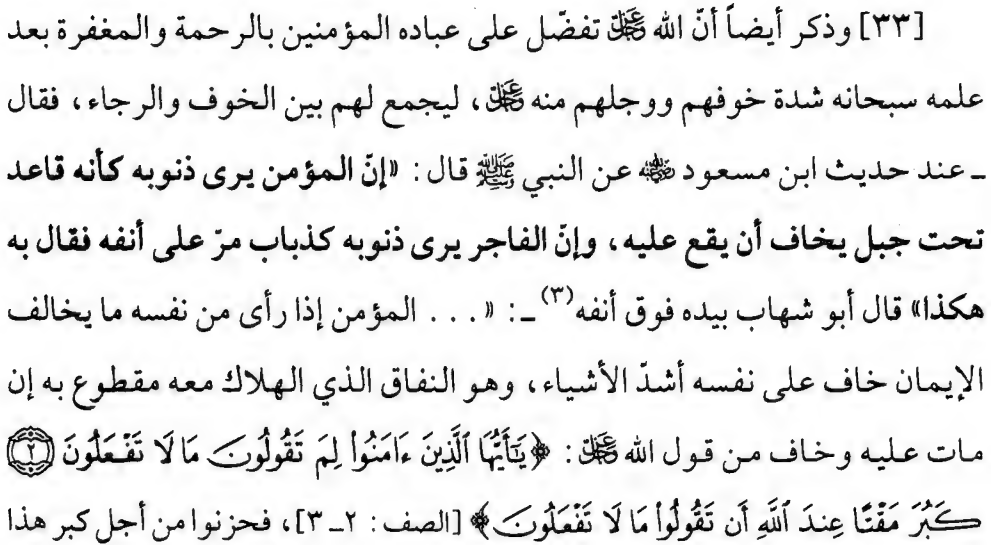 [٣٣] وذكر أيضاً أنّ الله ﷿ تفضّل على عباده المؤمنين بالرحمة والمغفرة بعد
علمه سبحانه شدة خوفهم ووجلهم منه ﷿، ليجمع لهم بين الخوف والرجاء، فقال
ـ عند حديث ابن مسعود ﵁ عن النبي ﷺ قال: «إنّ المؤمن يرى ذنوبه كأنه قاعد
تحت جبل يخاف أن يقع عليه، وإنّ الفاجر يرى ذنوبه كذباب مرّ على أنفه فقال به
هكذا» قال أبو شهاب بيده فوق أنفه(٣) ـ: «... المؤمن إذا رأى من نفسه ما يخالف
الإيمان خاف على نفسه أشدّ الأشياء، وهو النفاق الذي الهلاك معه مقطوع به إن
مات عليه وخاف من قول الله ﷿: ﴿يَٰٓأَيُّهَا ٱلَّذِينَ ءَامَنُواْ لِمَ تَقُولُونَ مَا لَا تَفْعَلُونَ ۝٢
كَبُرَ مَقْتًا عِندَ ٱللَّهِ أَن تَقُولُواْ مَا لَا تَفْعَلُونَ﴾ [الصف: ٢ـ ٣]، فحزنوا من أجل كبر هذا